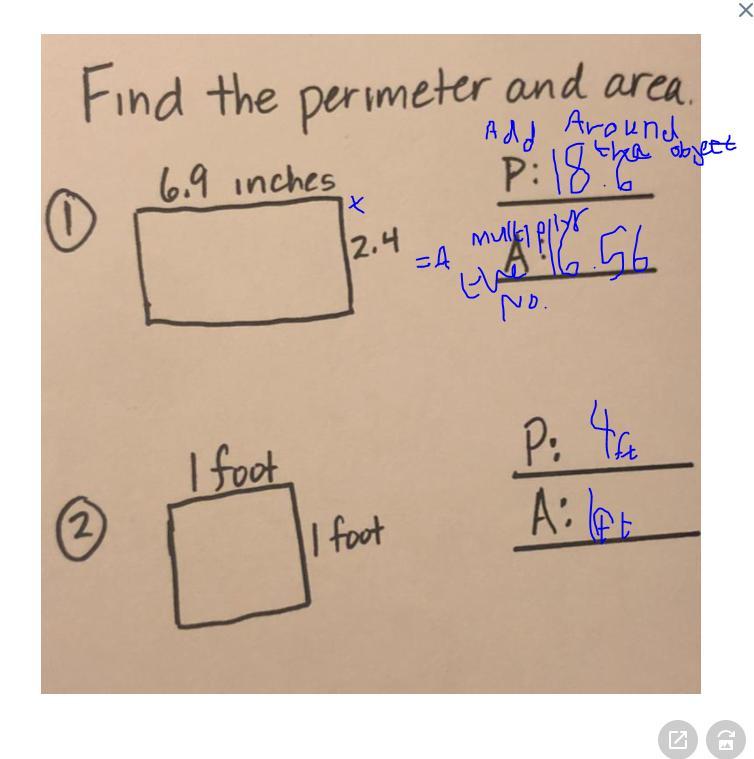 Find the perimeter and area.
Add Around
the object
1
6.9 inches
P: 18.6
x
2.4
multiplyr
= A
A: 16.56
the
No.
1 foot
P: 4ft
2
1 foot
A: 1ft